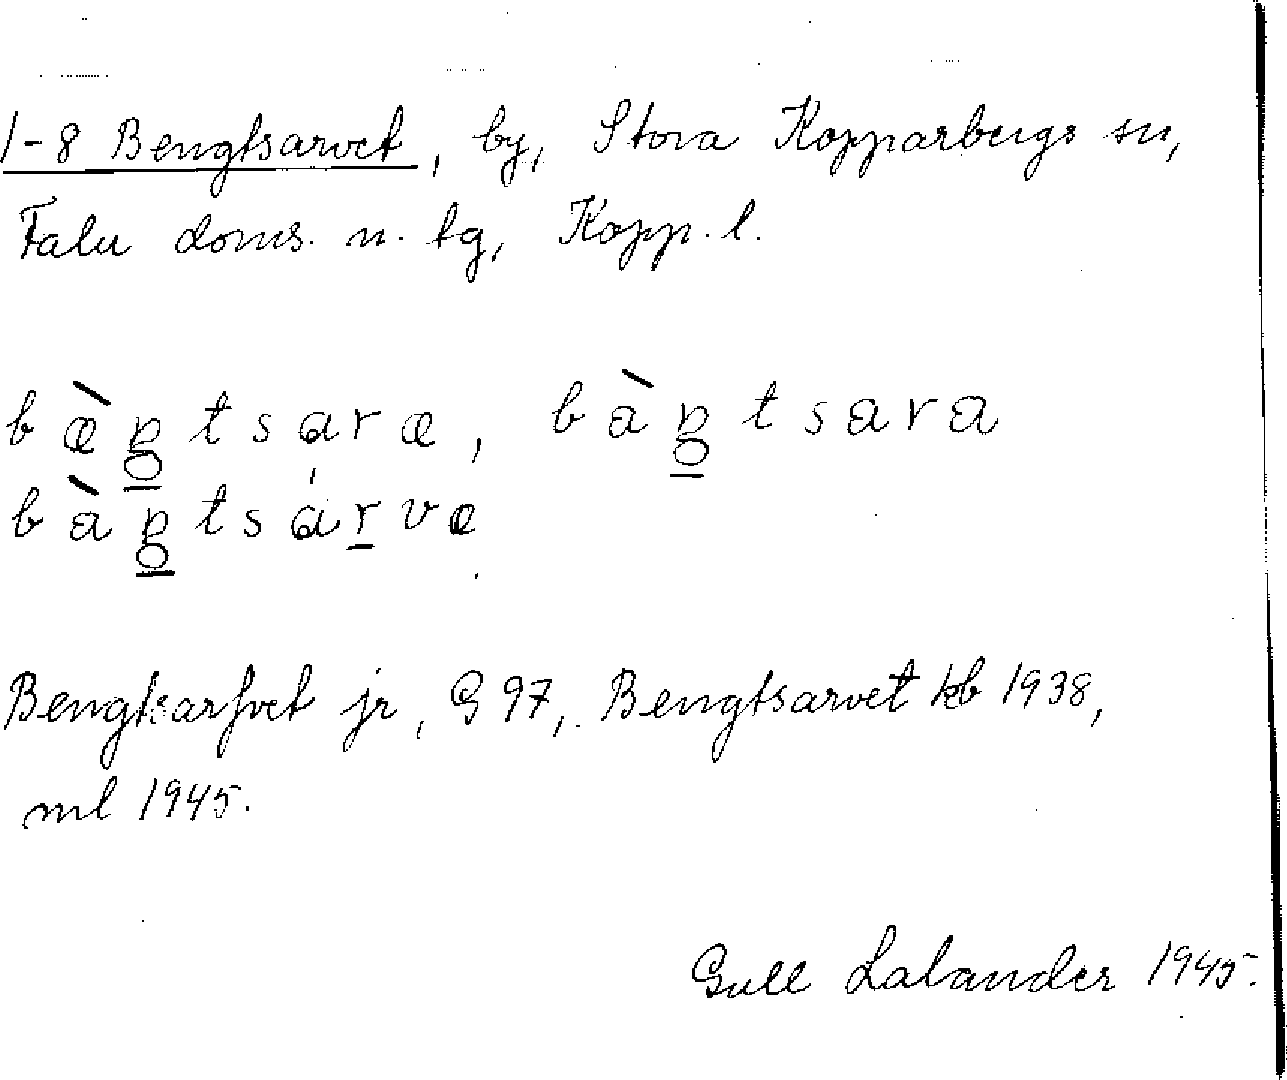 1-8 Bengtsarvet, by, Stora Kopparbergs sn,
Falu doms. n. tg, Kopp. l.
bæ̀ŋ̲̊tsaræ, bàŋ̲̊tsara
bàŋ̲̊tsár̲væ
Bengtsarfvet jr, G 97, Bengtsarvet kb 1938,
ml 1945.
Gull Lalander 1945.